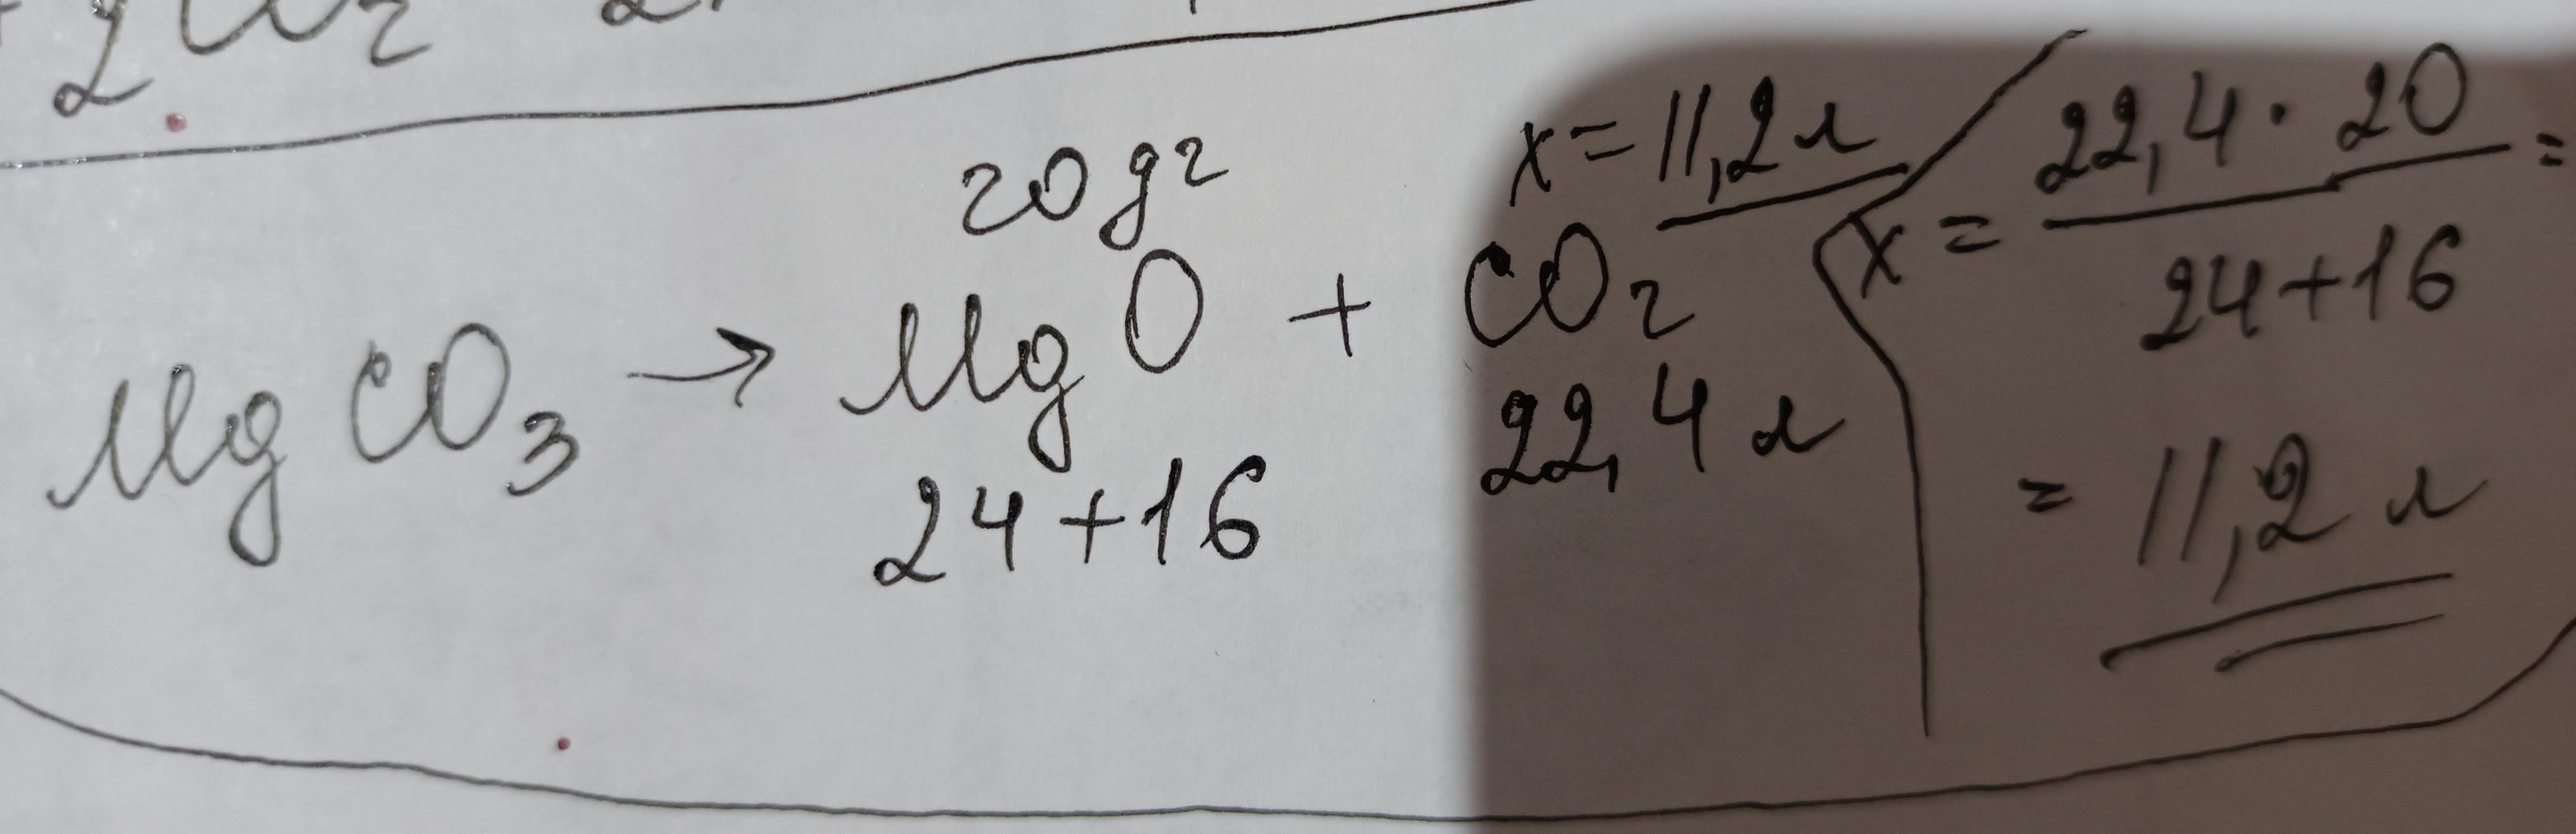 20 գր
x = 11,2 л
MgCO₃ → MgO + CO₂
24+16
22,4 л
x = 22,4 · 20 / 24+16 =
= 11,2 л